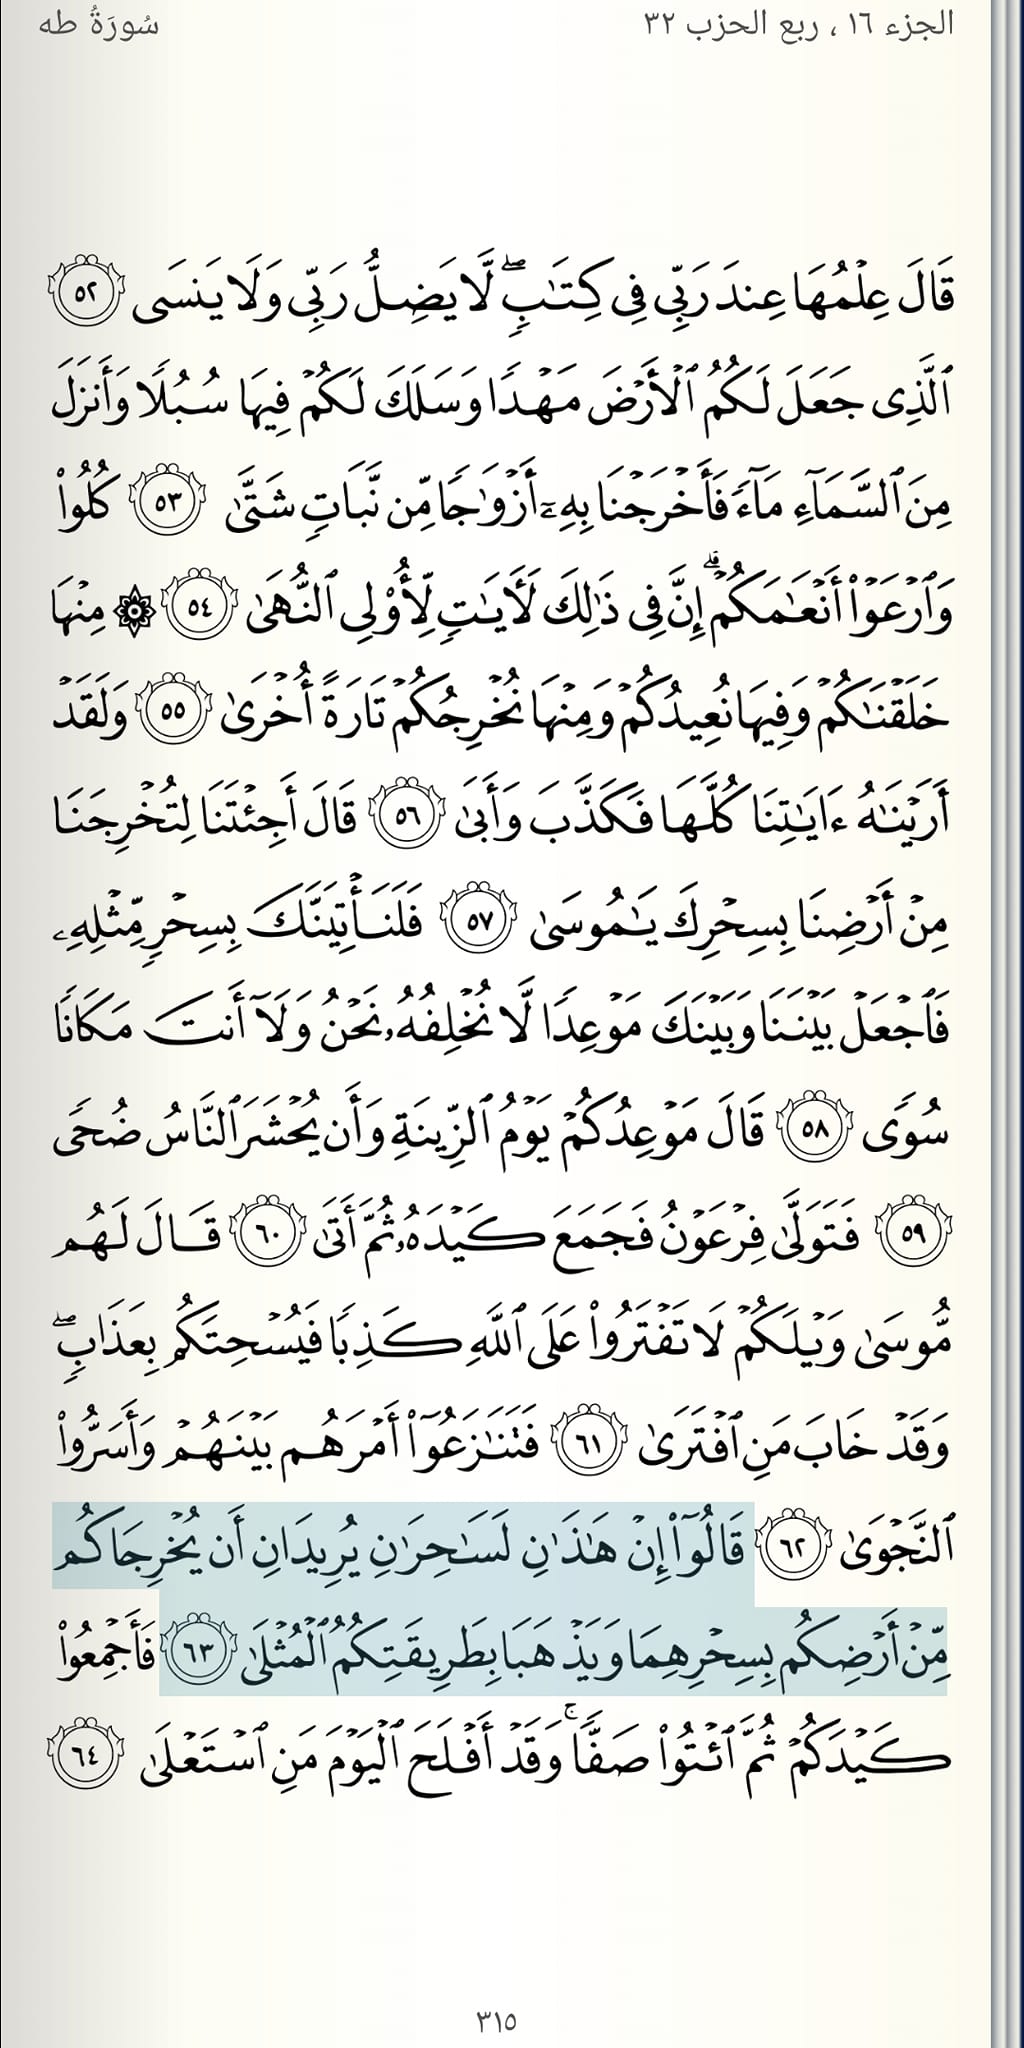 الجزء ١٦ ، ربع الحزب ٣٢
سُورَةُ طه
قَالَ عِلۡمُهَا عِندَ رَبِّي فِي كِتَٰبٖۖ لَّا يَضِلُّ رَبِّي وَلَا يَنسَى ٥٢
ٱلَّذِي جَعَلَ لَكُمُ ٱلۡأَرۡضَ مَهۡدٗا وَسَلَكَ لَكُمۡ فِيهَا سُبُلٗا وَأَنزَلَ
مِنَ ٱلسَّمَآءِ مَآءٗ فَأَخۡرَجۡنَا بِهِۦٓ أَزۡوَٰجٗا مِّن نَّبَاتٖ شَتَّىٰ ٥٣ كُلُواْ
وَٱرۡعَوۡاْ أَنۡعَٰمَكُمۡۚ إِنَّ فِي ذَٰلِكَ لَأٓيَٰتٖ لِّأُوْلِي ٱلنُّهَىٰ ٥٤ ۞ مِنۡهَا
خَلَقۡنَٰكُمۡ وَفِيهَا نُعِيدُكُمۡ وَمِنۡهَا نُخۡرِجُكُمۡ تَارَةً أُخۡرَىٰ ٥٥ وَلَقَدۡ
أَرَيۡنَٰهُ ءَايَٰتِنَا كُلَّهَا فَكَذَّبَ وَأَبَىٰ ٥٦ قَالَ أَجِئۡتَنَا لِتُخۡرِجَنَا
مِنۡ أَرۡضِنَا بِسِحۡرِكَ يَٰمُوسَىٰ ٥٧ فَلَنَأۡتِيَنَّكَ بِسِحۡرٖ مِّثۡلِهِۦ
فَٱجۡعَلۡ بَيۡنَنَا وَبَيۡنَكَ مَوۡعِدٗا لَّا نُخۡلِفُهُۥ نَحۡنُ وَلَآ أَنتَ مَكَانٗا
سُوٗى ٥٨ قَالَ مَوۡعِدُكُمۡ يَوۡمُ ٱلزِّينَةِ وَأَن يُحۡشَرَ ٱلنَّاسُ ضُحٗى
٥٩ فَتَوَلَّىٰ فِرۡعَوۡنُ فَجَمَعَ كَيۡدَهُۥ ثُمَّ أَتَىٰ ٦٠ قَالَ لَهُم
مُّوسَىٰ وَيۡلَكُمۡ لَا تَفۡتَرُواْ عَلَى ٱللَّهِ كَذِبٗا فَيُسۡحِتَكُم بِعَذَابٖۖ
وَقَدۡ خَابَ مَنِ ٱفۡتَرَىٰ ٦١ فَتَنَٰزَعُوٓاْ أَمۡرَهُم بَيۡنَهُمۡ وَأَسَرُّواْ
ٱلنَّجۡوَىٰ ٦٢ قَالُوٓاْ إِنۡ هَٰذَٰنِ لَسَٰحِرَٰنِ يُرِيدَانِ أَن يُخۡرِجَاكُم
مِّنۡ أَرۡضِكُم بِسِحۡرِهِمَا وَيَذۡهَبَا بِطَرِيقَتِكُمُ ٱلۡمُثۡلَىٰ ٦٣ فَأَجۡمِعُواْ
كَيۡدَكُمۡ ثُمَّ ٱئۡتُواْ صَفّٗاۚ وَقَدۡ أَفۡلَحَ ٱلۡيَوۡمَ مَنِ ٱسۡتَعۡلَىٰ ٦٤
٣١٥